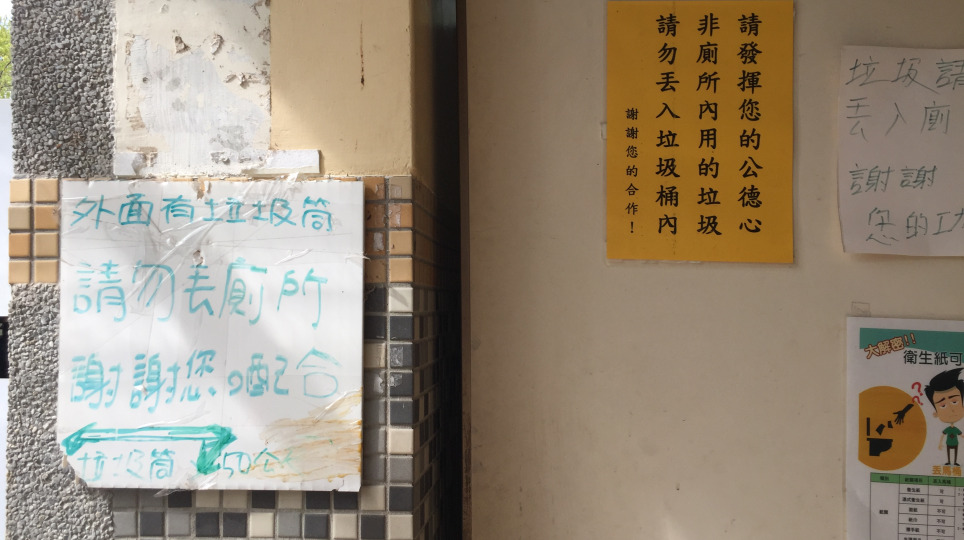 外面有垃圾筒
請勿丟廁所
謝謝您配合
垃圾筒 50公
請發揮您的公德心
非廁所內用的垃圾
請勿丟入垃圾桶內
謝謝您的合作！
垃圾請
丟入廁
謝謝
您的
大解密!!
衛生紙可
丟馬桶